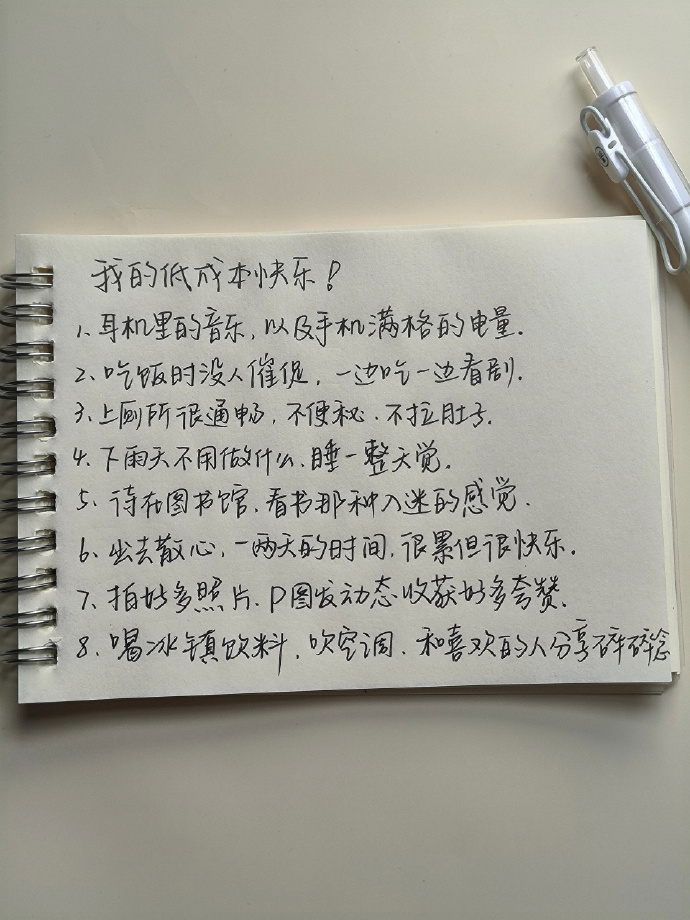 我的低成本快乐！
1、耳机里的音乐，以及手机满格的电量.
2、吃饭时没人催促，一边吃一边看剧.
3、上厕所很通畅，不便秘、不拉肚子.
4、下雨天不用做什么、睡一整天觉.
5、待在图书馆、看书那种入迷的感觉.
6、出去散心，一两天的时间，很累但很快乐.
7、拍好多照片、P图发动态收获好多夸赞.
8、喝冰镇饮料，吹空调、和喜欢的人分享碎碎念